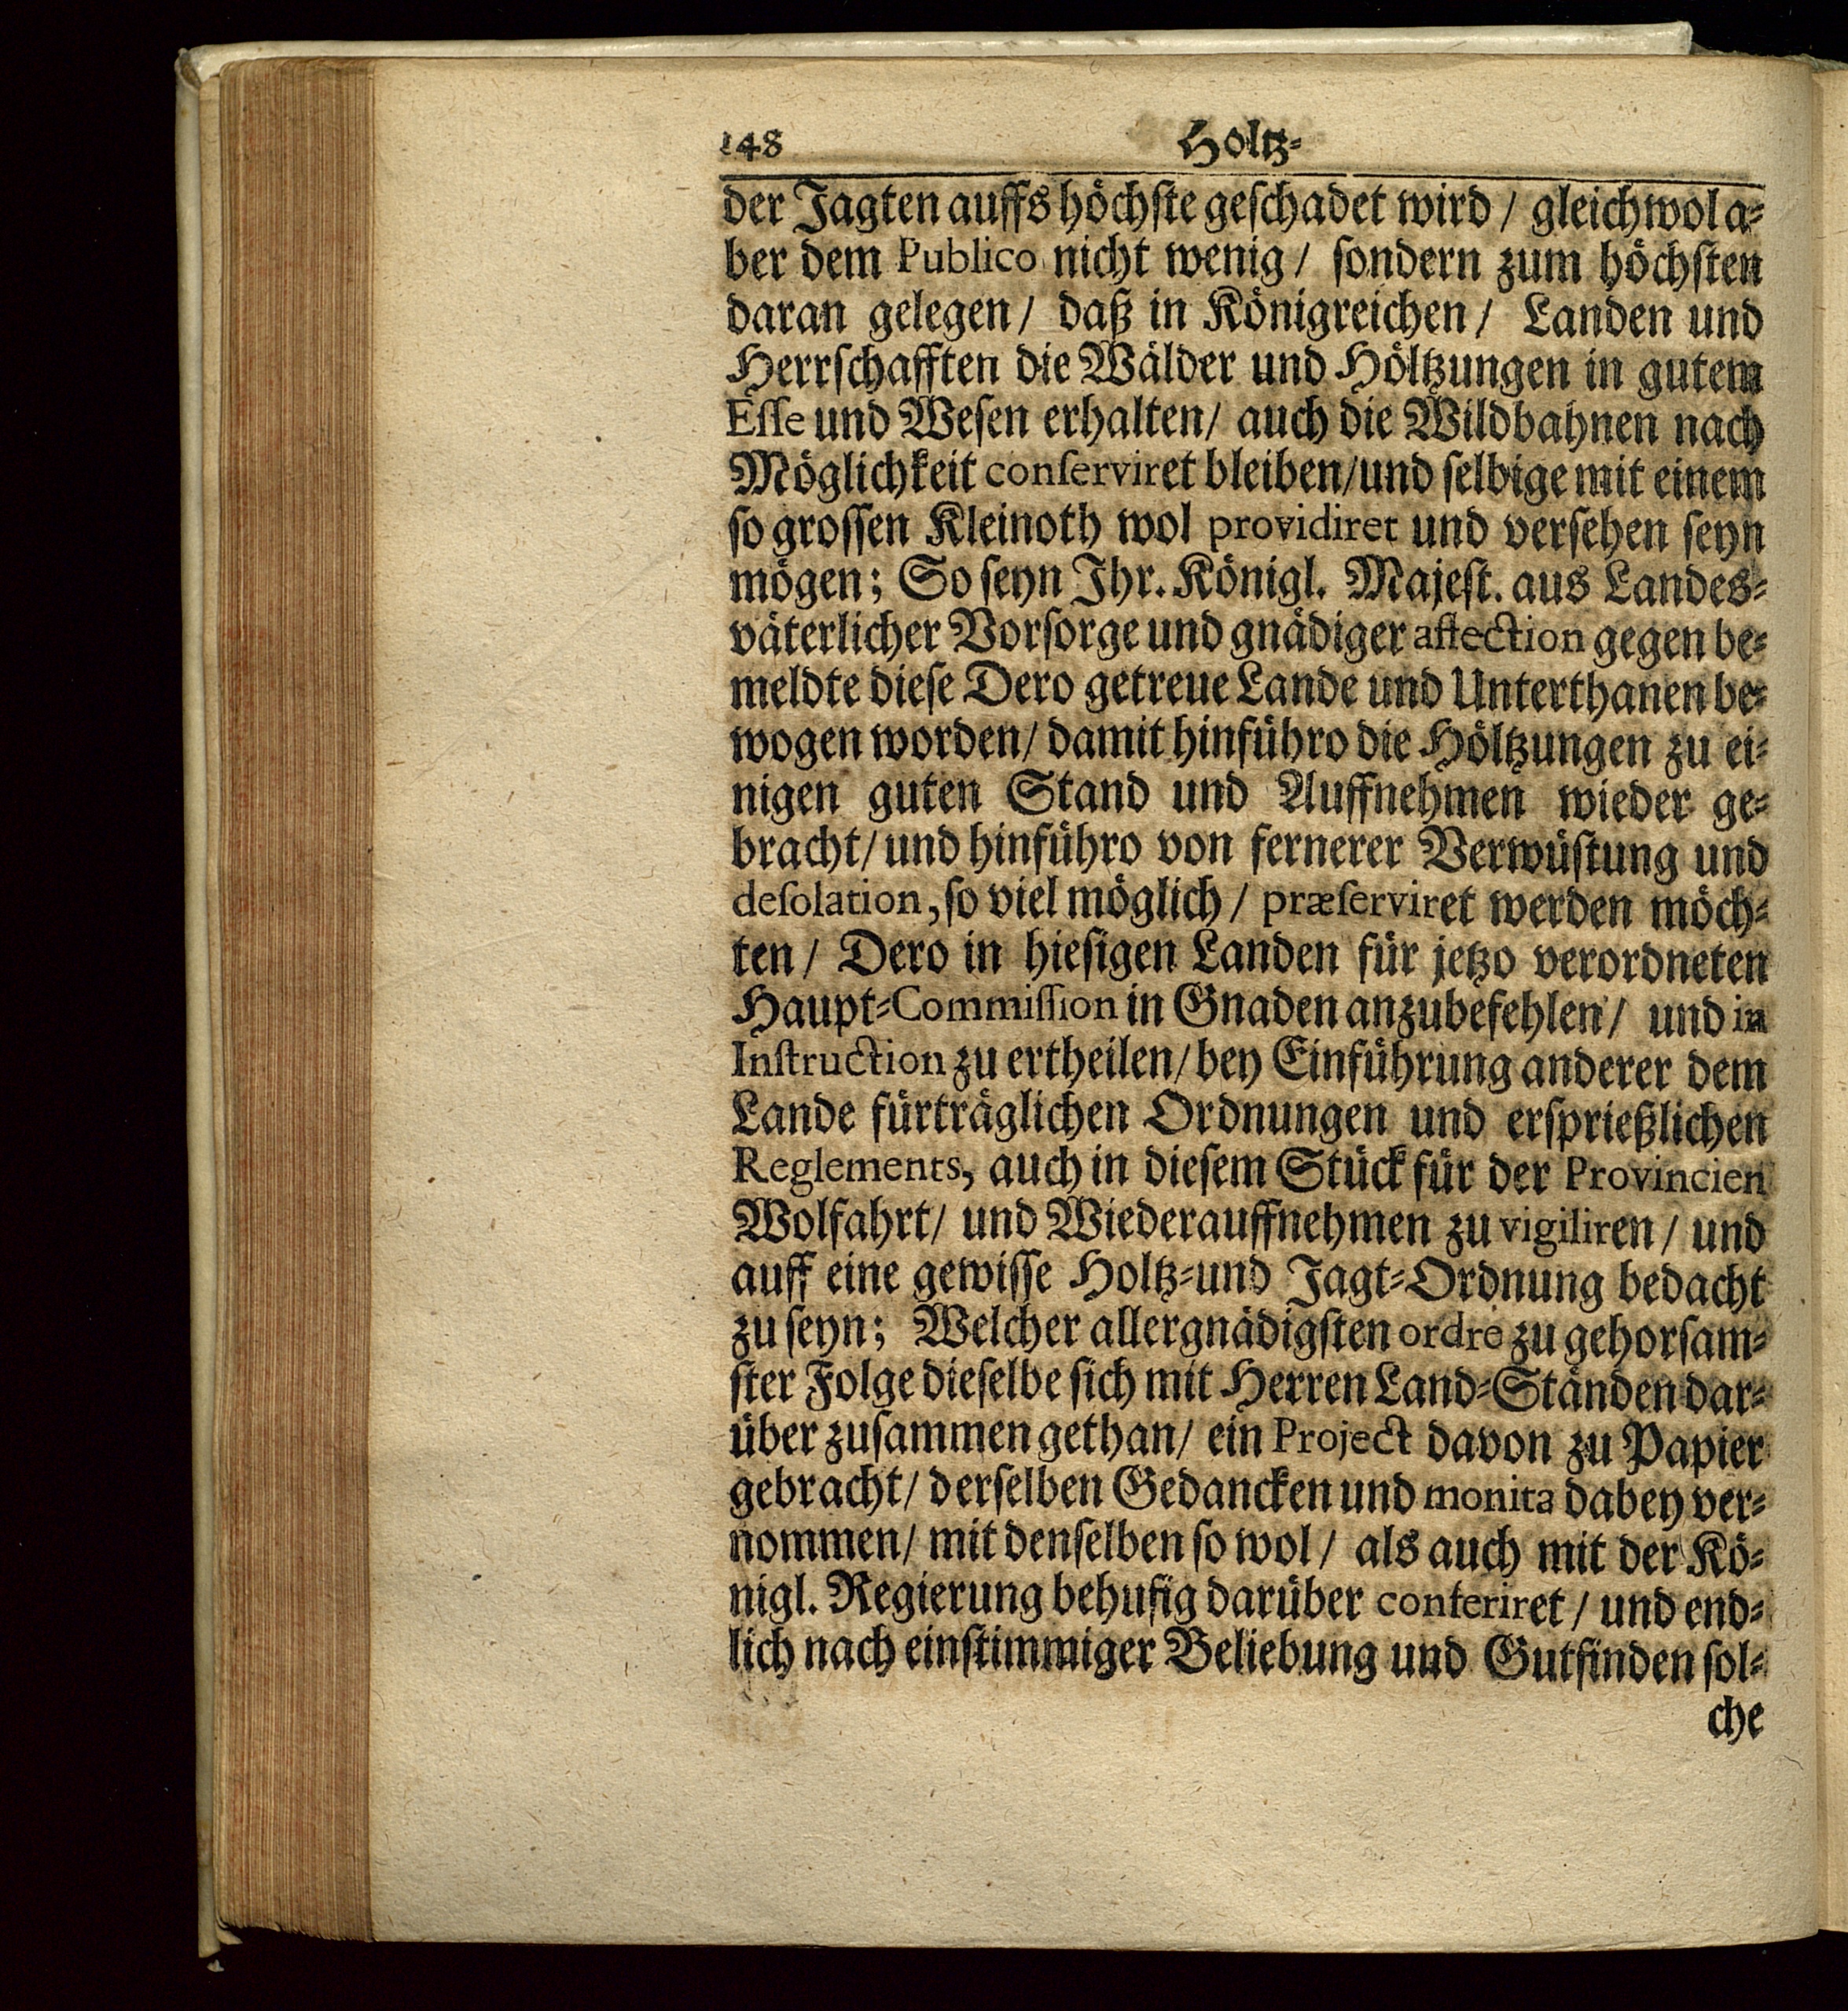 148 Holtz-
der Jagten auffs höchste geschadet wird / gleichwol a-
ber dem Publico nicht wenig / sondern zum höchsten
daran gelegen / daß in Königreichen / Landen und
Herrschafften die Wälder und Höltzungen in gutem
Esse und Wesen erhalten / auch die Wildbahnen nach
Möglichkeit conserviret bleiben / und selbige mit einem
so grossen Kleinoth wol providiret und versehen seyn
mögen; So seyn Ihr. Königl. Majest. aus Landes-
väterlicher Vorsorge und gnädiger affection gegen be-
meldte diese Dero getreue Lande und Unterthanen be-
wogen worden / damit hinführo die Höltzungen zu ei-
nigen guten Stand und Auffnehmen wieder ge-
bracht / und hinführo von fernerer Verwüstung und
desolation, so viel möglich / præserviret werden möch-
ten / Dero in hiesigen Landen für jetzo verordneten
Haupt-Commission in Gnaden anzubefehlen / und in
Instruction zu ertheilen / bey Einführung anderer dem
Lande fürträglichen Ordnungen und ersprießlichen
Reglements, auch in diesem Stück für der Provincien
Wolfahrt / und Wiederauffnehmen zu vigiliren / und
auff eine gewisse Holtz-und Jagt-Ordnung bedacht
zu seyn; Welcher allergnädigsten ordre zu gehorsam-
ster Folge dieselbe sich mit Herren Land-Ständen dar-
über zusammen gethan / ein Project davon zu Papier
gebracht / derselben Gedancken und monita dabey ver-
nommen / mit denselben so wol / als auch mit der Kö-
nigl. Regierung behufig darüber conferiret / und end-
lich nach einstimmiger Beliebung und Gutfinden sol-
che